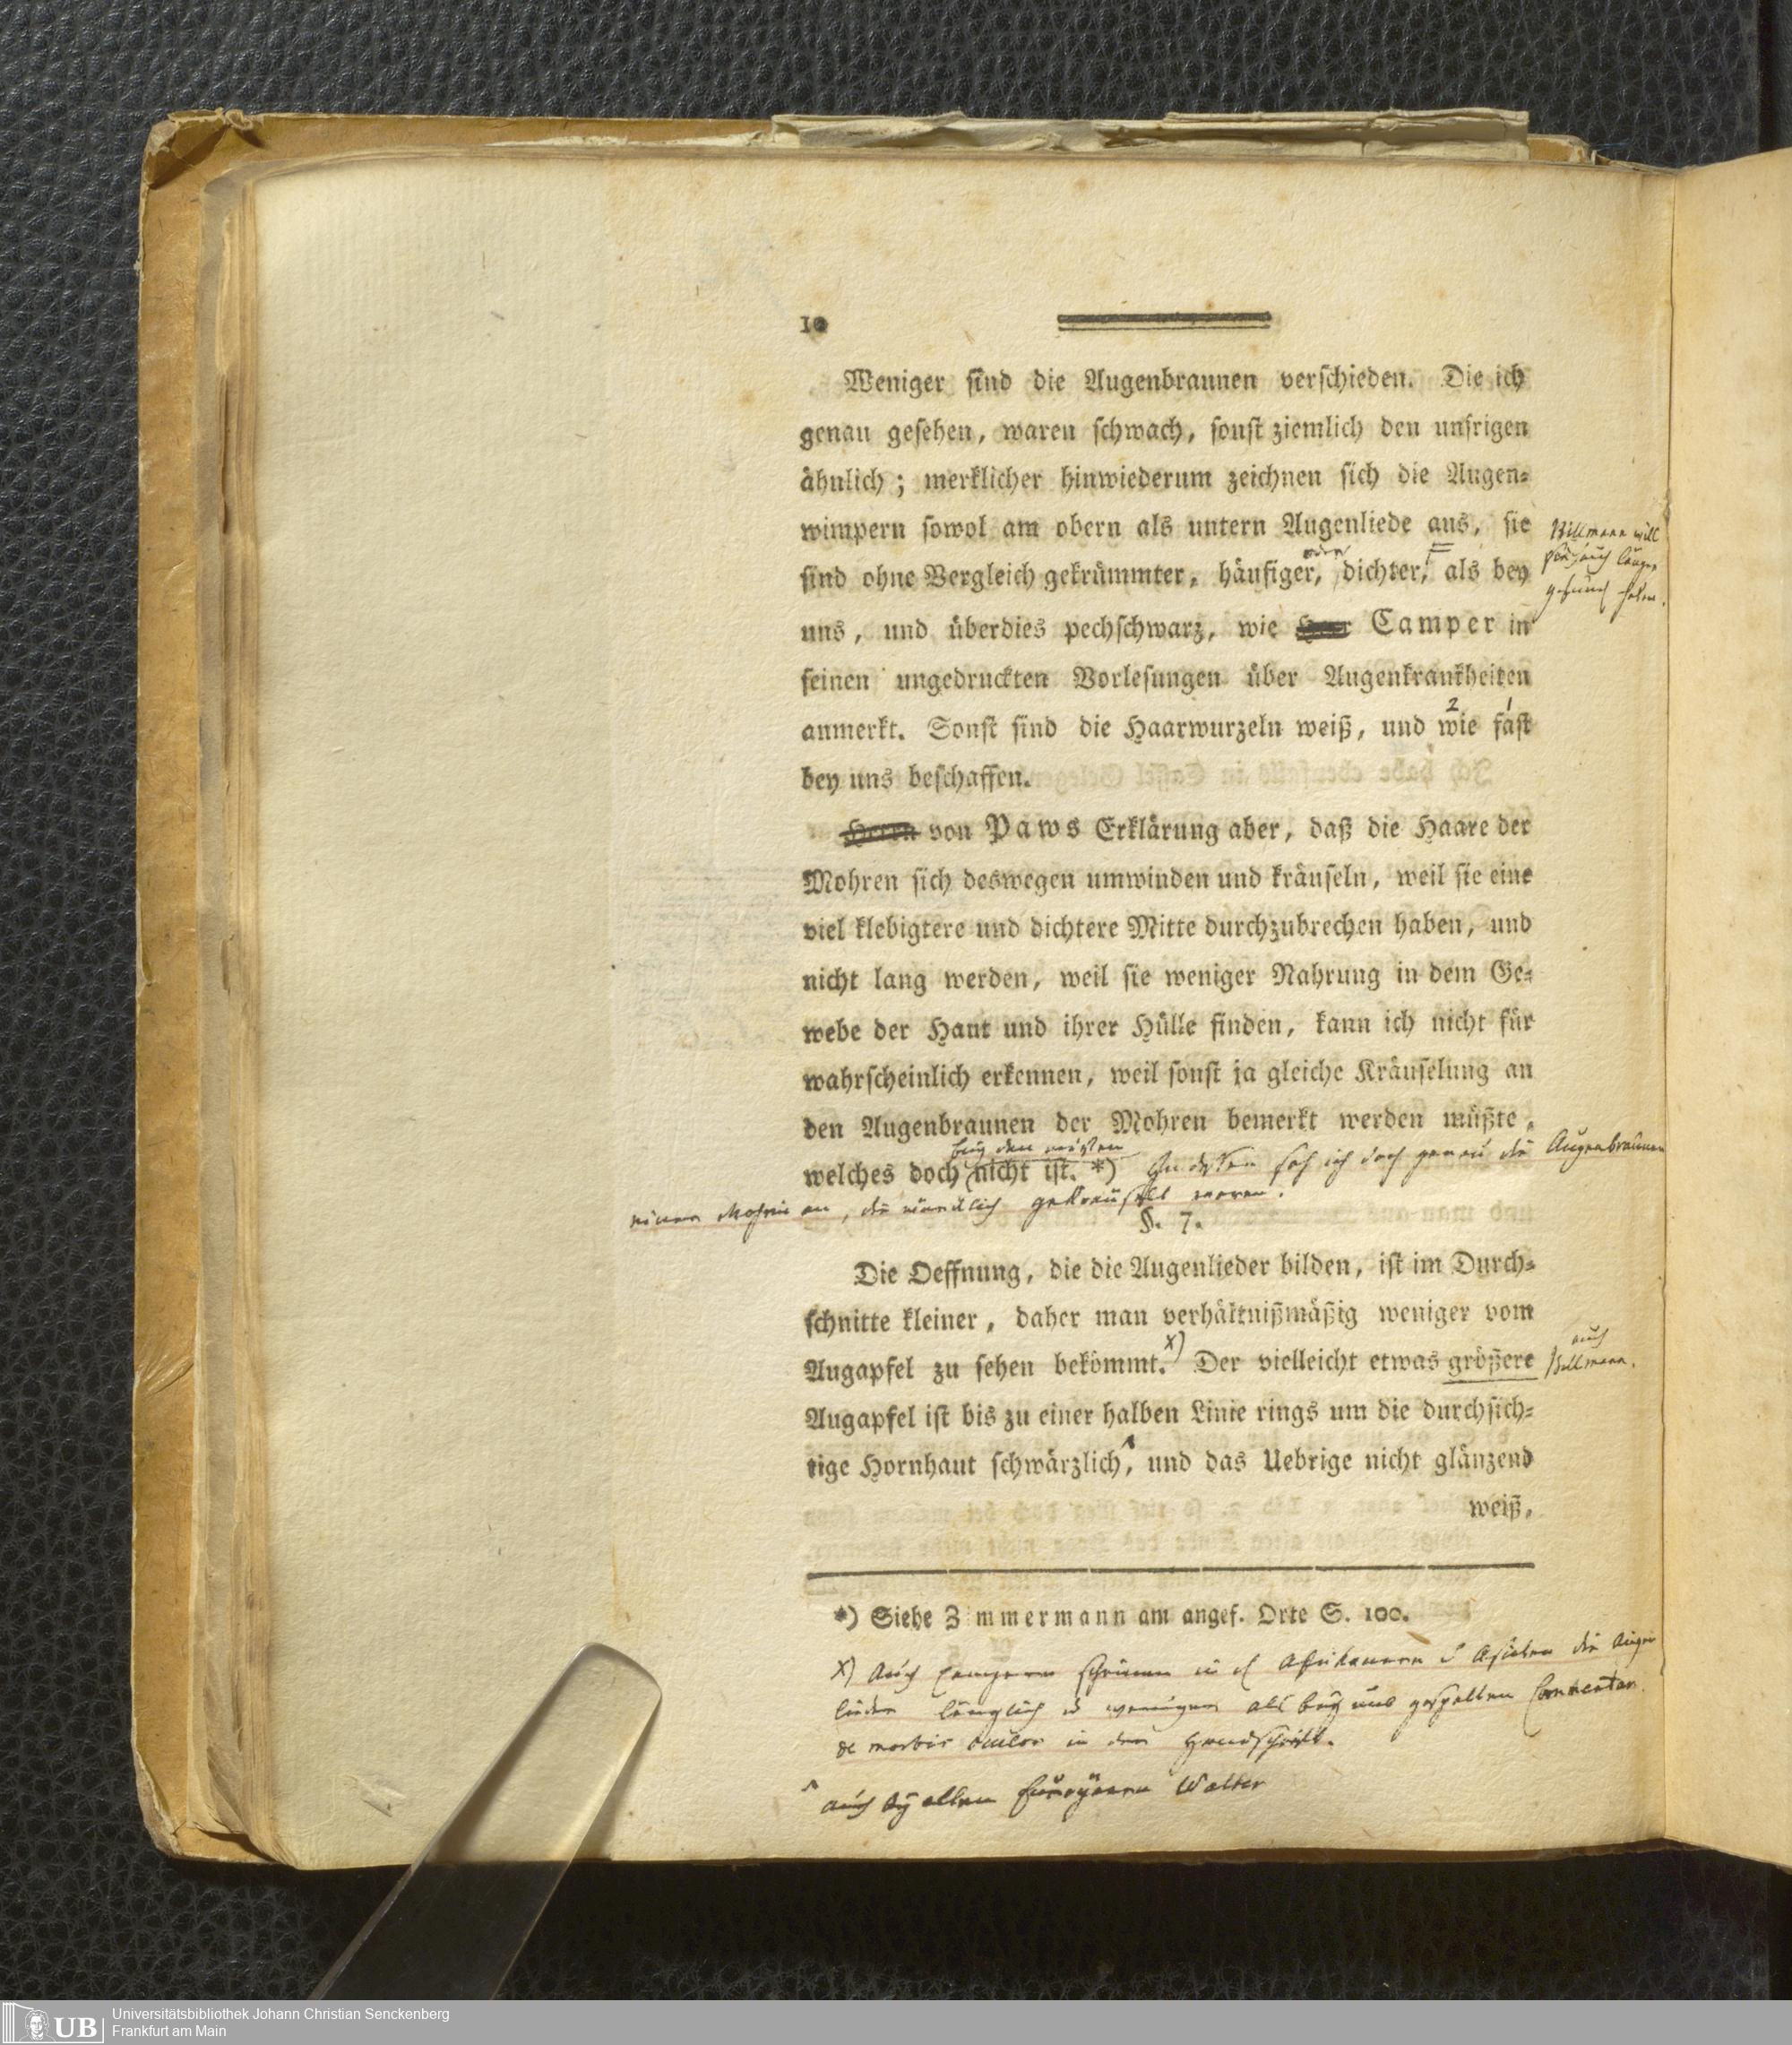 10
Weniger ſind die Augenbraunen verſchieden. Die ich
genau geſehen, waren ſchwach, ſonſt ziemlich den unſrigen
ähnlich; merklicher hinwiederum zeichnen ſich die Augen⸗
wimpern ſowol am obern als untern Augenliede aus, ſie
Billmann will
ſind ohne Vergleich gekrümmter, häufiger, dichter, als bey
uns, und überdies pechſchwarz, wie Herr Camper in
ſeinen ungedruckten Vorleſungen über Augenkrankheiten
2 1
anmerkt. Sonſt ſind die Haarwurzeln weiß, und wie faſt
bey uns beſchaffen.
Herrn von Paws Erklärung aber, daß die Haare der
Mohren ſich deswegen umwinden und kräuſeln, weil ſie eine
viel klebigtere und dichtere Mitte durchzubrechen haben, und
nicht lang werden, weil ſie weniger Nahrung in dem Ge⸗
webe der Haut und ihrer Hülle finden, kann ich nicht für
wahrſcheinlich erkennen, weil ſonſt ja gleiche Kräuſelung an
den Augenbraunen der Mohren bemerkt werden müßte,
bey den meisten
welches doch nicht iſt. *) Indessen sah ich doch genau die Augenbraunen
einer Mohrin an, die deutlich gekräuselt waren.
§. 7.
Die Oeffnung, die die Augenlieder bilden, iſt im Durch⸗
ſchnitte kleiner, daher man verhältnißmäßig weniger vom
Augapfel zu ſehen bekömmt. x) Der vielleicht etwas größere
auch
Billmann.
Augapfel iſt bis zu einer halben Linie rings um die durchſich⸗
tige Hornhaut ſchwärzlich, und das Uebrige nicht glänzend
weiß,
*) Siehe Zimmermann am angef. Orte S. 100.
x) Auch Campern scheinen die Augen
lieder länglich weniger als bey uns gespalten Commentar.
de morbis oculor in der Handschrift.
auch by allen Europäern Walter
UB Universitätsbibliothek Johann Christian Senckenberg
Frankfurt am Main